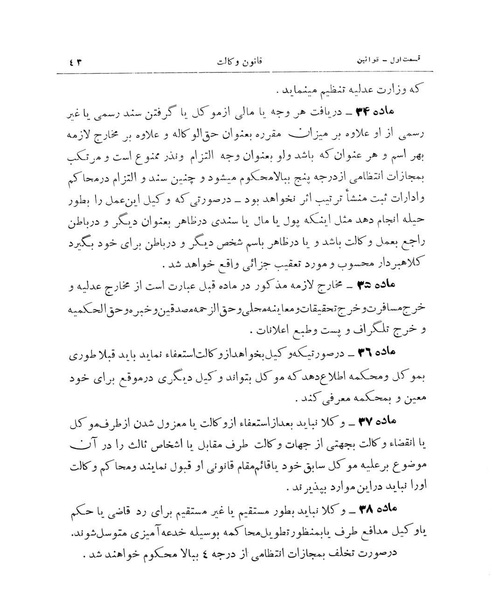 قسمت اول ــ قوانین
قانون وکالت
٤٣
که وزارت عدلیه تنظیم مینماید .
ماده ٣٤ ــ دریافت هر وجه یا مالی ازموکل یا گرفتن سند رسمی یا غیر
رسمی از او علاوه بر میزان مقرره بعنوان حق‌الوکاله و علاوه بر مخارج لازمه
بهر اسم و هر عنوان که باشد ولو بعنوان وجه التزام ونذر ممنوع است و مرتکب
بمجازات انتظامی ازدرجه پنج ببالامحکوم میشود و چنین سند و التزام درمحاکم
وادارات ثبت منشأ ترتیب اثر نخواهد بود ــ درصورتی‌که وکیل این‌عمل را بطور
حیله انجام دهد مثل اینکه پول یا مال یا سندی درظاهر بعنوان دیگر و درباطن
راجع بعمل وکالت باشد و یا درظاهر باسم شخص دیگر و درباطن برای خود بگیرد
کلاهبردار محسوب و مورد تعقیب جزائی واقع خواهد شد .
ماده ٣٥ ــ مخارج لازمه مذکور در ماده قبل عبارت است از مخارج عدلیه و
خرج مسافرت و خرج تحقیقات و معاینه محلی و حق‌الزحمه مصدقین و خبره و حق‌الحکمیه
و خرج تلگراف و پست وطبع اعلانات .
ماده ٣٦ ــ درصورتیکه وکیل بخواهد ازوکالت استعفاء نماید باید قبلا طوری
بموکل ومحکمه اطلاع دهدکه موکل بتواند وکیل دیگری درموقع برای خود
معین و بمحکمه معرفی کند .
ماده ٣٧ ــ وکلا نباید بعداز استعفاء ازوکالت یا معزول شدن ازطرف موکل
یا انقضاء وکالت بجهتی از جهات وکالت طرف مقابل یا اشخاص ثالث را در آن
موضوع برعلیه موکل سابق خود یاقائم‌مقام قانونی او قبول نمایند ومحاکم وکالت
اورا نباید دراین موارد بپذیرند .
ماده ٣٨ ــ وکلا نباید بطور مستقیم یا غیر مستقیم برای رد قاضی یا حکم
یاوکیل مدافع طرف یابمنظور تطویل محاکمه بوسیله خدعه‌آمیزی متوسل‌شوند.
درصورت تخلف بمجازات انتظامی از درجه ٤ ببالا محکوم خواهند شد .